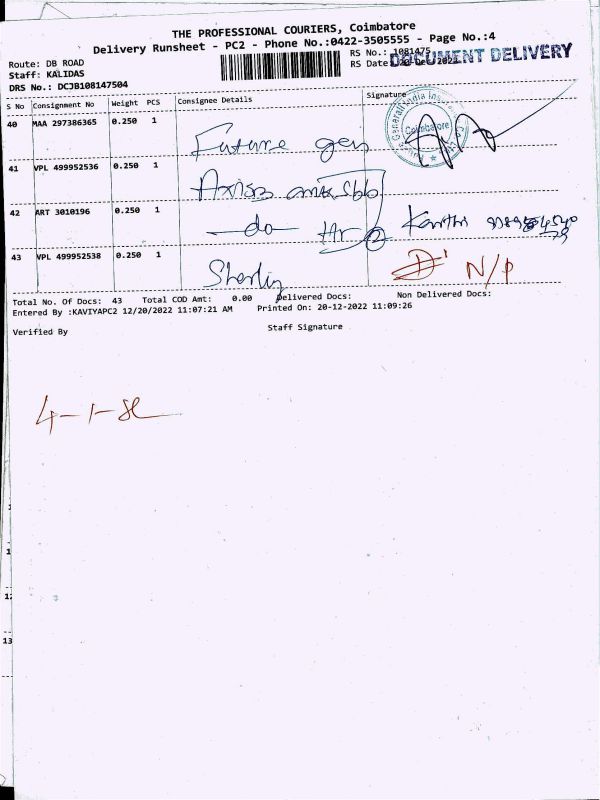 THE PROFESSIONAL COURIERS, Coimbatore
Delivery Runsheet - PC2 - Phone No.:0422-3505555 - Page No.:4
Route: DB ROAD
Staff: KALIDAS
DRS No.: DCJB108147504
RS No.: 1081475
RS Date:
DOCUMENT DELIVERY
S No Consignment No Weight PCS Consignee Details Signature
40 MAA 297386365 0.250 1 Future gen
41 VPL 499952536 0.250 1 Axisb
42 ART 3010196 0.250 1 do
43 VPL 499952538 0.250 1 N/P
Generali India
Coimbatore
Total No. Of Docs: 43 Total COD Amt: 0.00 Delivered Docs: Non Delivered Docs:
Entered By :KAVIYAPC2 12/20/2022 11:07:21 AM Printed On: 20-12-2022 11:09:26
Staff Signature
Verified By
4-1-
1
1
13